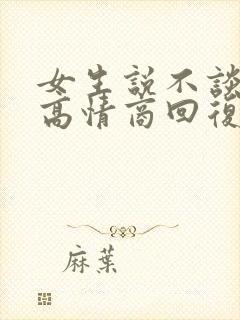 女生說不談
高情商回復
麻葉